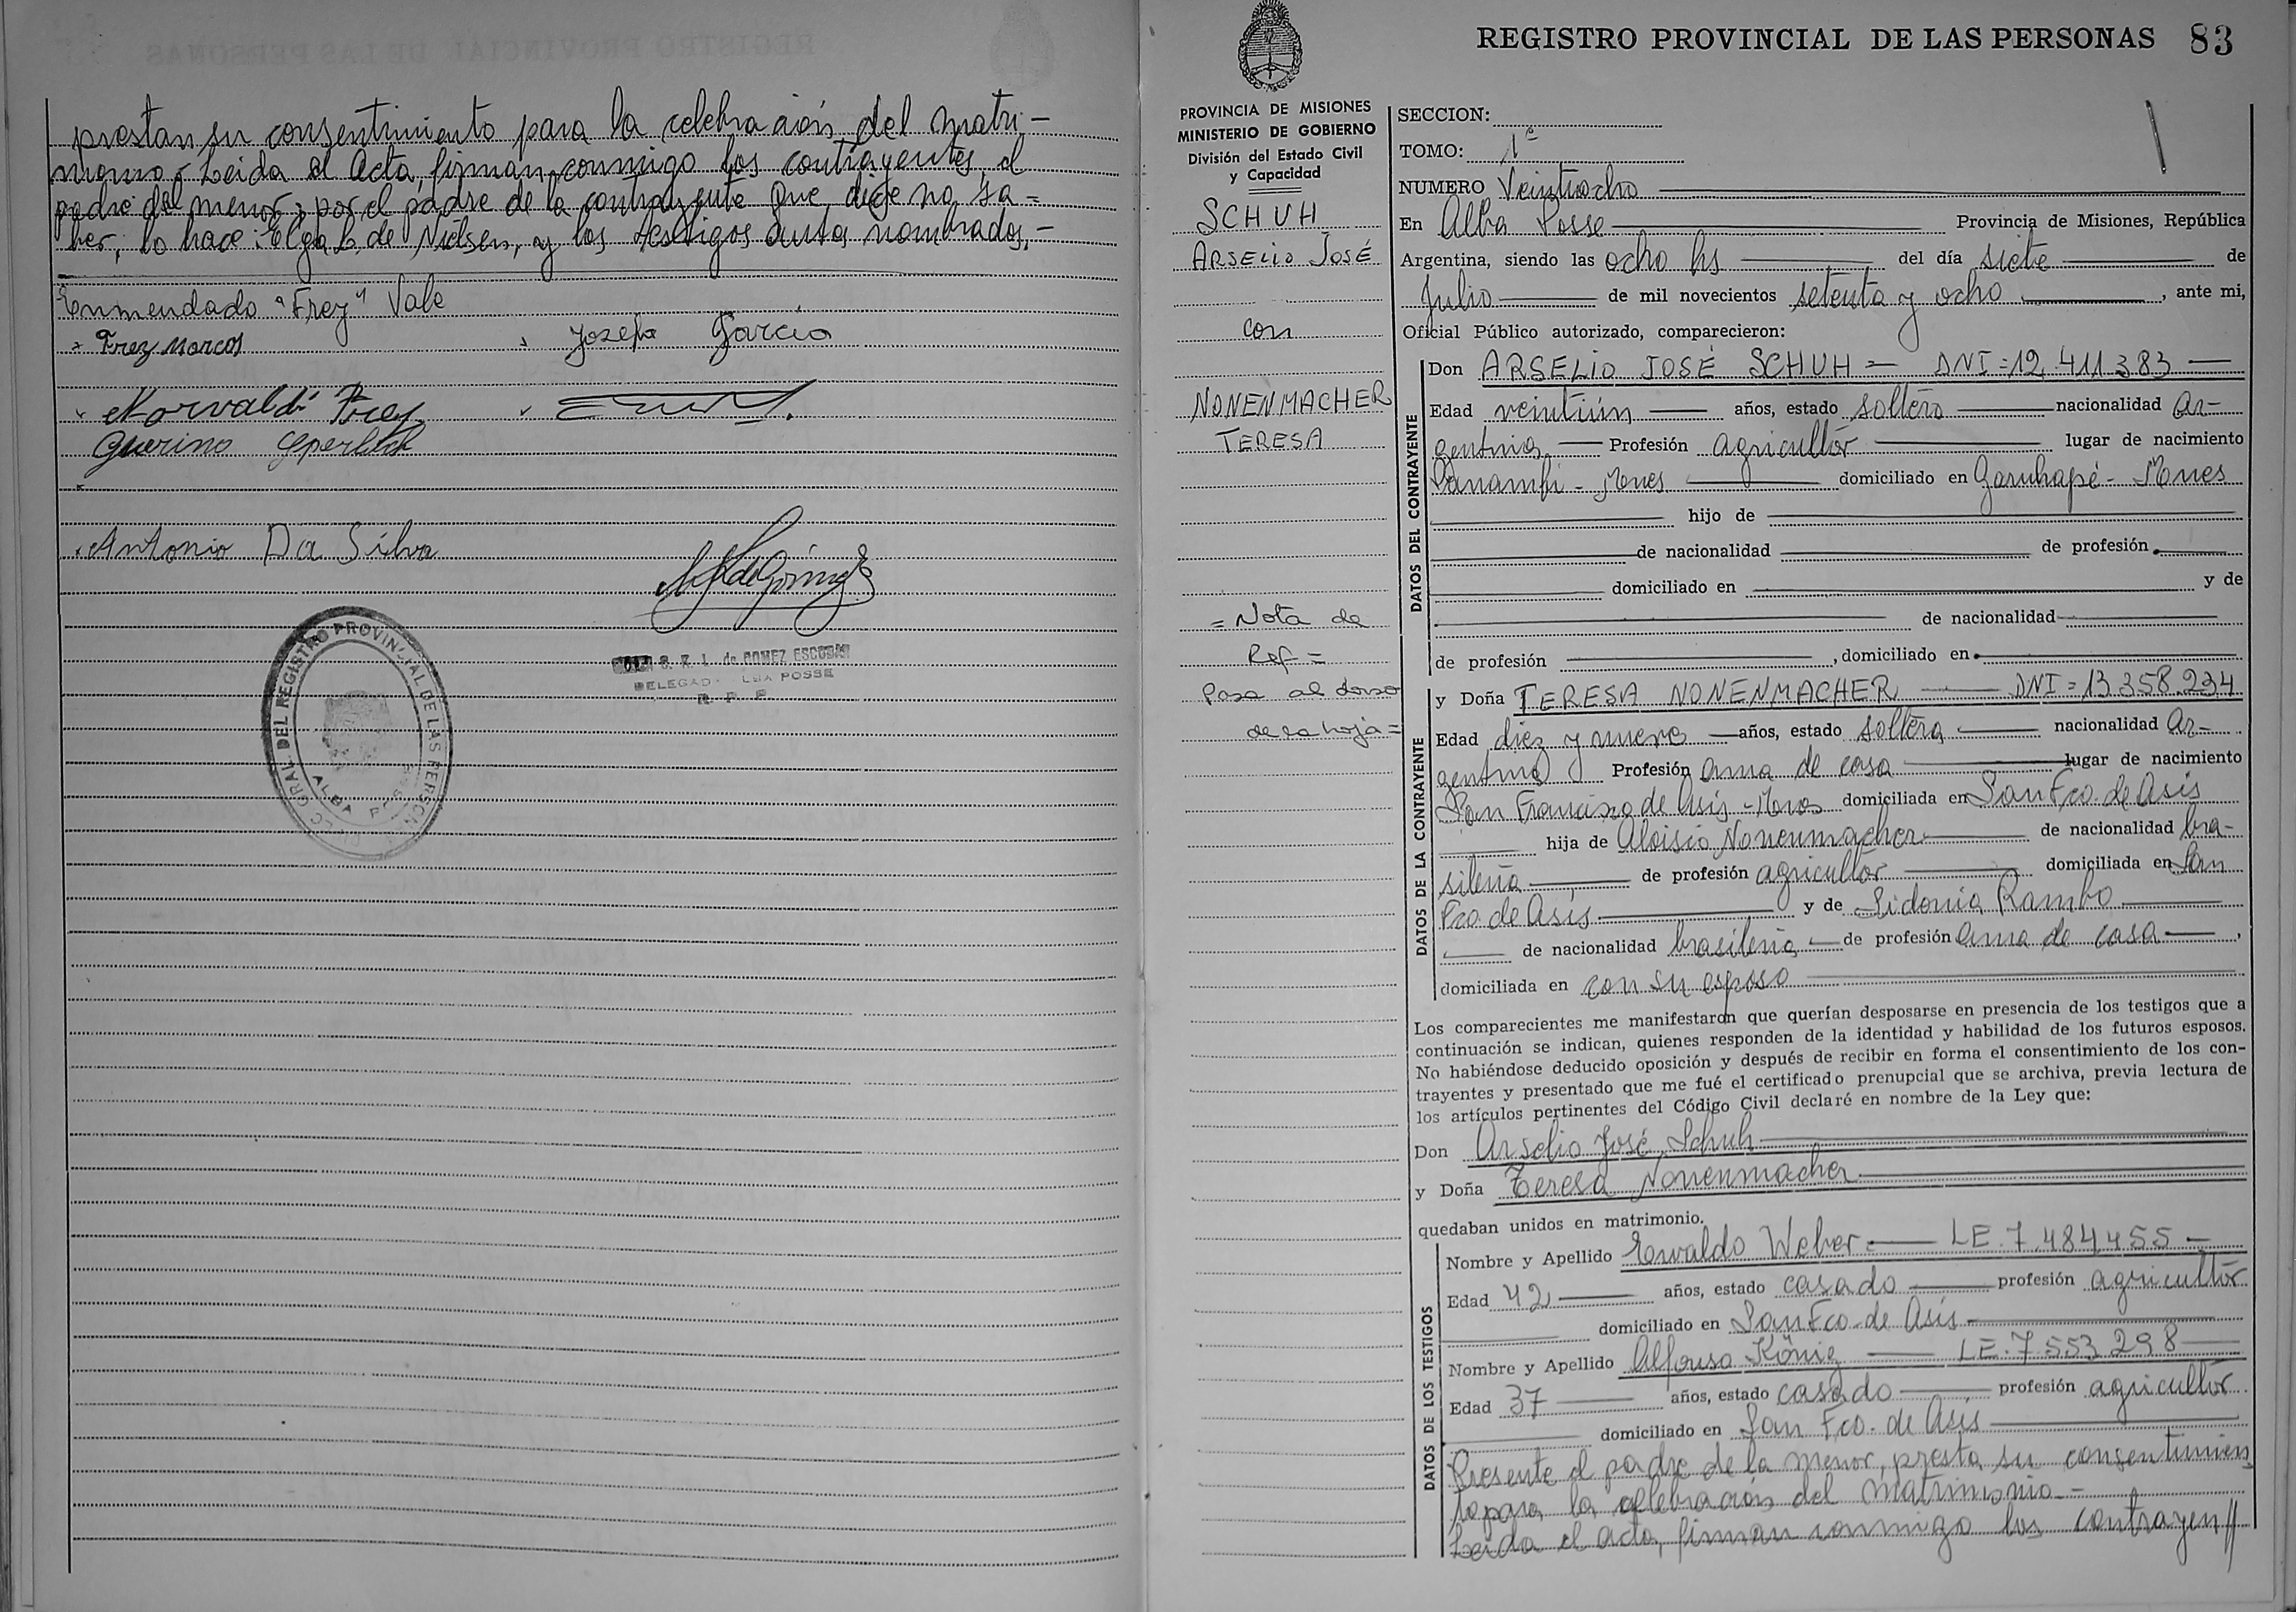 prestan su consentimiento para la celebración del matri-
monio.- Leida el Acta, firman conmigo los contrayentes, el
padre del menor y por el padre de la contrayente que dice no sa-
ber, lo hace: Elga L. de Nielsen, y los testigos antes nombrados.-
Enmendado "Frey" Vale
Frey Marcos
Josefa Garcia
Norvaldi Frey
Guerino Gperlich
Antonio Da Silva
DE GOMEZ ESCOBAR
DELEGADA ALBA POSSE
R. P. P.
GRAL. DEL REGISTRO PROVINCIAL DE LAS PERSONAS
ALBA POSSE
REGISTRO PROVINCIAL DE LAS PERSONAS 83
PROVINCIA DE MISIONES
MINISTERIO DE GOBIERNO
División del Estado Civil
y Capacidad
SCHUH
ARSELIO JOSÉ
con
NONENMACHER
TERESA
= Nota de
Ref =
Pasa al dorso
de la hoja =
SECCION:
TOMO: 1º
NUMERO Veintiocho
En Alba Posse Provincia de Misiones, República
Argentina, siendo las ocho hs del día siete de
Julio de mil novecientos setenta y ocho, ante mi,
Oficial Público autorizado, comparecieron:
DATOS DEL CONTRAYENTE
Don ARSELIO JOSÉ SCHUH - DNI=12.411.383
Edad veintiún años, estado soltero nacionalidad ar-
gentina Profesión agricultor lugar de nacimiento
Panambi - Mnes domiciliado en Garuhapé - Mnes
hijo de
de nacionalidad de profesión
domiciliado en y de
de nacionalidad
de profesión , domiciliado en
DATOS DE LA CONTRAYENTE
y Doña TERESA NONENMACHER DNI=13.358.234
Edad diez y nueve años, estado soltera nacionalidad ar-
gentina Profesión ama de casa lugar de nacimiento
San Francisco de Asís - Mnes domiciliada en San Fco. de Asís
hija de Aloisio Nonenmacher de nacionalidad bra-
sileña de profesión agricultor domiciliada en San
Fco. de Asís y de Sidonia Rambo
de nacionalidad brasileña de profesión ama de casa ,
domiciliada en con su esposo
Los comparecientes me manifestaron que querían desposarse en presencia de los testigos que a
continuación se indican, quienes responden de la identidad y habilidad de los futuros esposos.
No habiéndose deducido oposición y después de recibir en forma el consentimiento de los con-
trayentes y presentado que me fué el certificado prenupcial que se archiva, previa lectura de
los artículos pertinentes del Código Civil declaré en nombre de la Ley que:
Don Arselio José Schuh
y Doña Teresa Nonenmacher
quedaban unidos en matrimonio.
DATOS DE LOS TESTIGOS
Nombre y Apellido Osvaldo Weber LE.7.484455
Edad 42 años, estado casado profesión agricultor
domiciliado en San Fco. de Asís
Nombre y Apellido Alfonso König LE.7553298
Edad 37 años, estado casado profesión agricultor
domiciliado en San Fco. de Asís
Presente el padre de la menor, presta su consentimien
to para la celebración del matrimonio.-
Leida el acta, firman conmigo los contrayen//